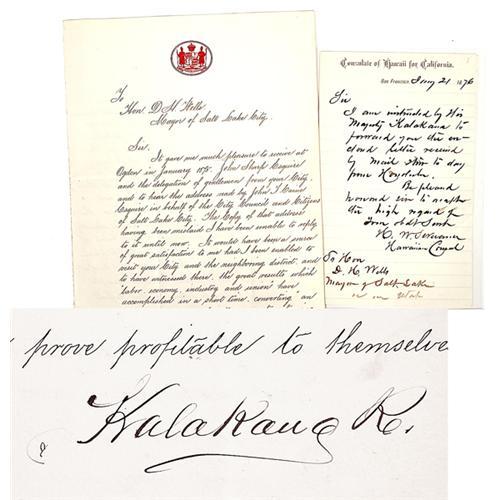 To
Hon D. H. Wells
Mayor of Salt Lake City.
Sir.
It gave me much pleasure to receive at
Ogden in January 1875. John Sharp Esquire
and the delegation of gentlemen from your City,
and to hear the address made by John T. Caine
Esquire in behalf of the City Council and Citizens
of Salt Lake City. The Copy of that address
having been mislaid I have been unable to reply
to it until now. It would have been a source
of great satisfaction to me had I been enabled to
visit your City and the neighboring district, and
to have witnessed there, the great results which
"labor, economy, industry and union" have
accomplished in a short time, converting an
Consulate of Hawaii for California.
San Francisco, Jany 21 1876
Sir
I am instructed by His
Majesty Kalakaua to
forward you the en-
closed letter received
by mail this to day
from Honolulu.
Be pleased
howard sir to accept
the high regard of
Your obdt Servt
H. W. Severance
Hawaiian Consul
To Hon
D. H. Wells
Mayor of Salt Lake
prove profitable to themselve
Kalakaua R.